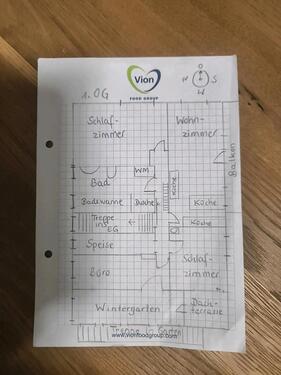 Vion
FOOD GROUP
N
S
W
1. OG
Schlaf-
zimmer
Wohn-
zimmer
Balkon
WM
Bad
Küche
Badewanne
Dusche
Küche
Treppe
ins
EG
Küche
Speise
Schlaf-
zimmer
Büro
Wintergarten
Dach-
terrasse
Treppe in Garten
www.vionfoodgroup.com